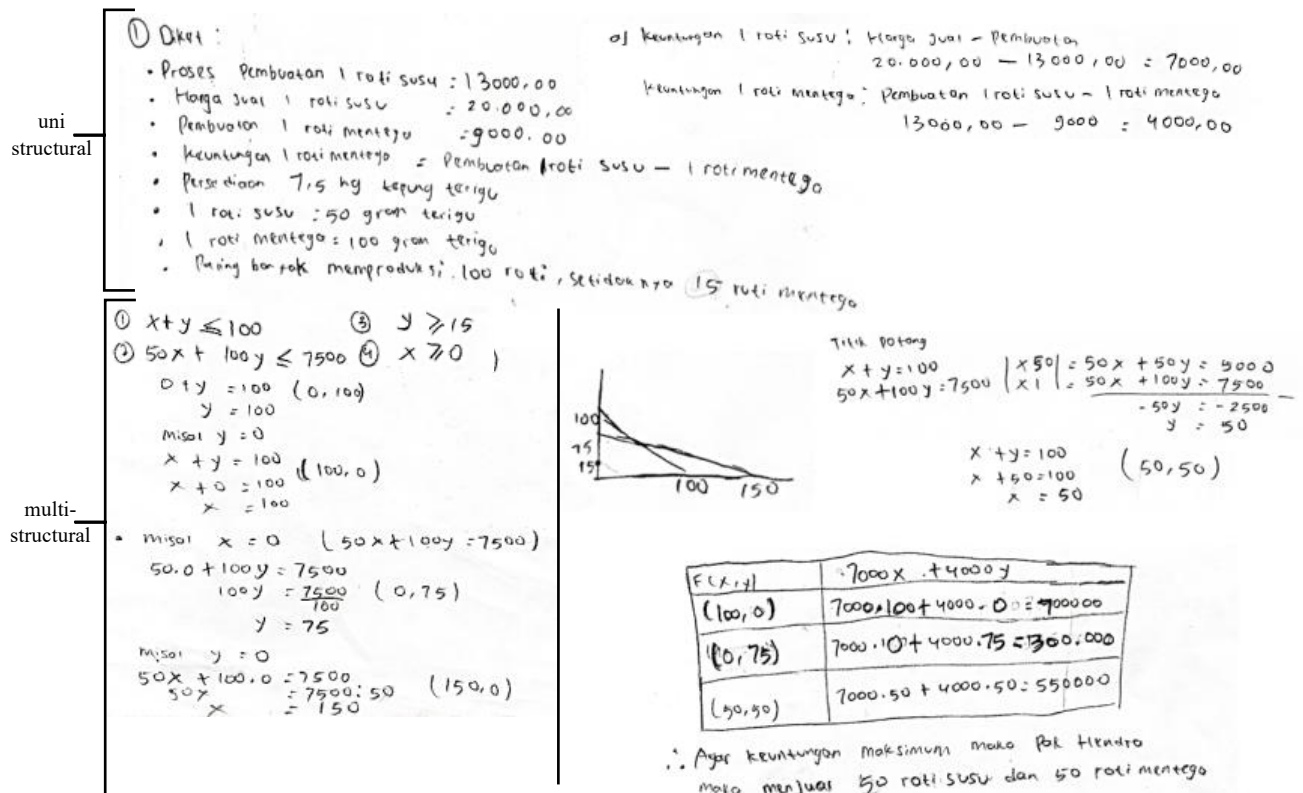 uni
structural
① Diket :
• Proses Pembuatan 1 roti susu : 13000,00
• Harga Jual 1 roti susu : 20.000,00
• Pembuatan 1 roti mentega : 9000.00
• Keuntungan 1 roti mentega = Pembuatan 1 roti susu – 1 roti mentega
• Persediaan 7,5 kg tepung terigu
• 1 roti susu : 50 gram terigu
• 1 roti mentega : 100 gram terigu
• Paling banyak memproduksi 100 roti, setidaknya 15 roti mentega
a) Keuntungan 1 roti susu : Harga Jual – Pembuatan
20.000,00 – 13000,00 = 7000,00
Keuntungan 1 roti mentega : Pembuatan 1 roti susu – 1 roti mentega
13000,00 – 9000 = 4000,00
multi-
structural
① x + y ≤ 100 ③ y ≥ 15
② 50x + 100y ≤ 7500 ④ x ≥ 0
0 + y = 100 (0, 100)
y = 100
misal y = 0
x + y = 100 (100, 0)
x + 0 = 100
x = 100
• misal x = 0 (50x + 100y = 7500)
50.0 + 100y = 7500
100y = 7500/100 (0, 75)
y = 75
misal y = 0
50x + 100.0 = 7500
50x = 7500 : 50 (150, 0)
x = 150
100
75
15
100 150
Titik potong
x + y = 100 | x50 | = 50x + 50y = 5000
50x + 100y = 7500 | x1 | = 50x + 100y = 7500 –
-50y = -2500
y = 50
x + y = 100
x + 50 = 100 (50, 50)
x = 50
F(x,y) 7000x + 4000y
(100, 0) 7000.100 + 4000.0 = 700000
(0, 75) 7000.10 + 4000.75 = 1300.000
(50,50) 7000.50 + 4000.50 = 550000
∴ Agar keuntungan maksimum maka Pak Hendro
maka menjual 50 roti susu dan 50 roti mentega